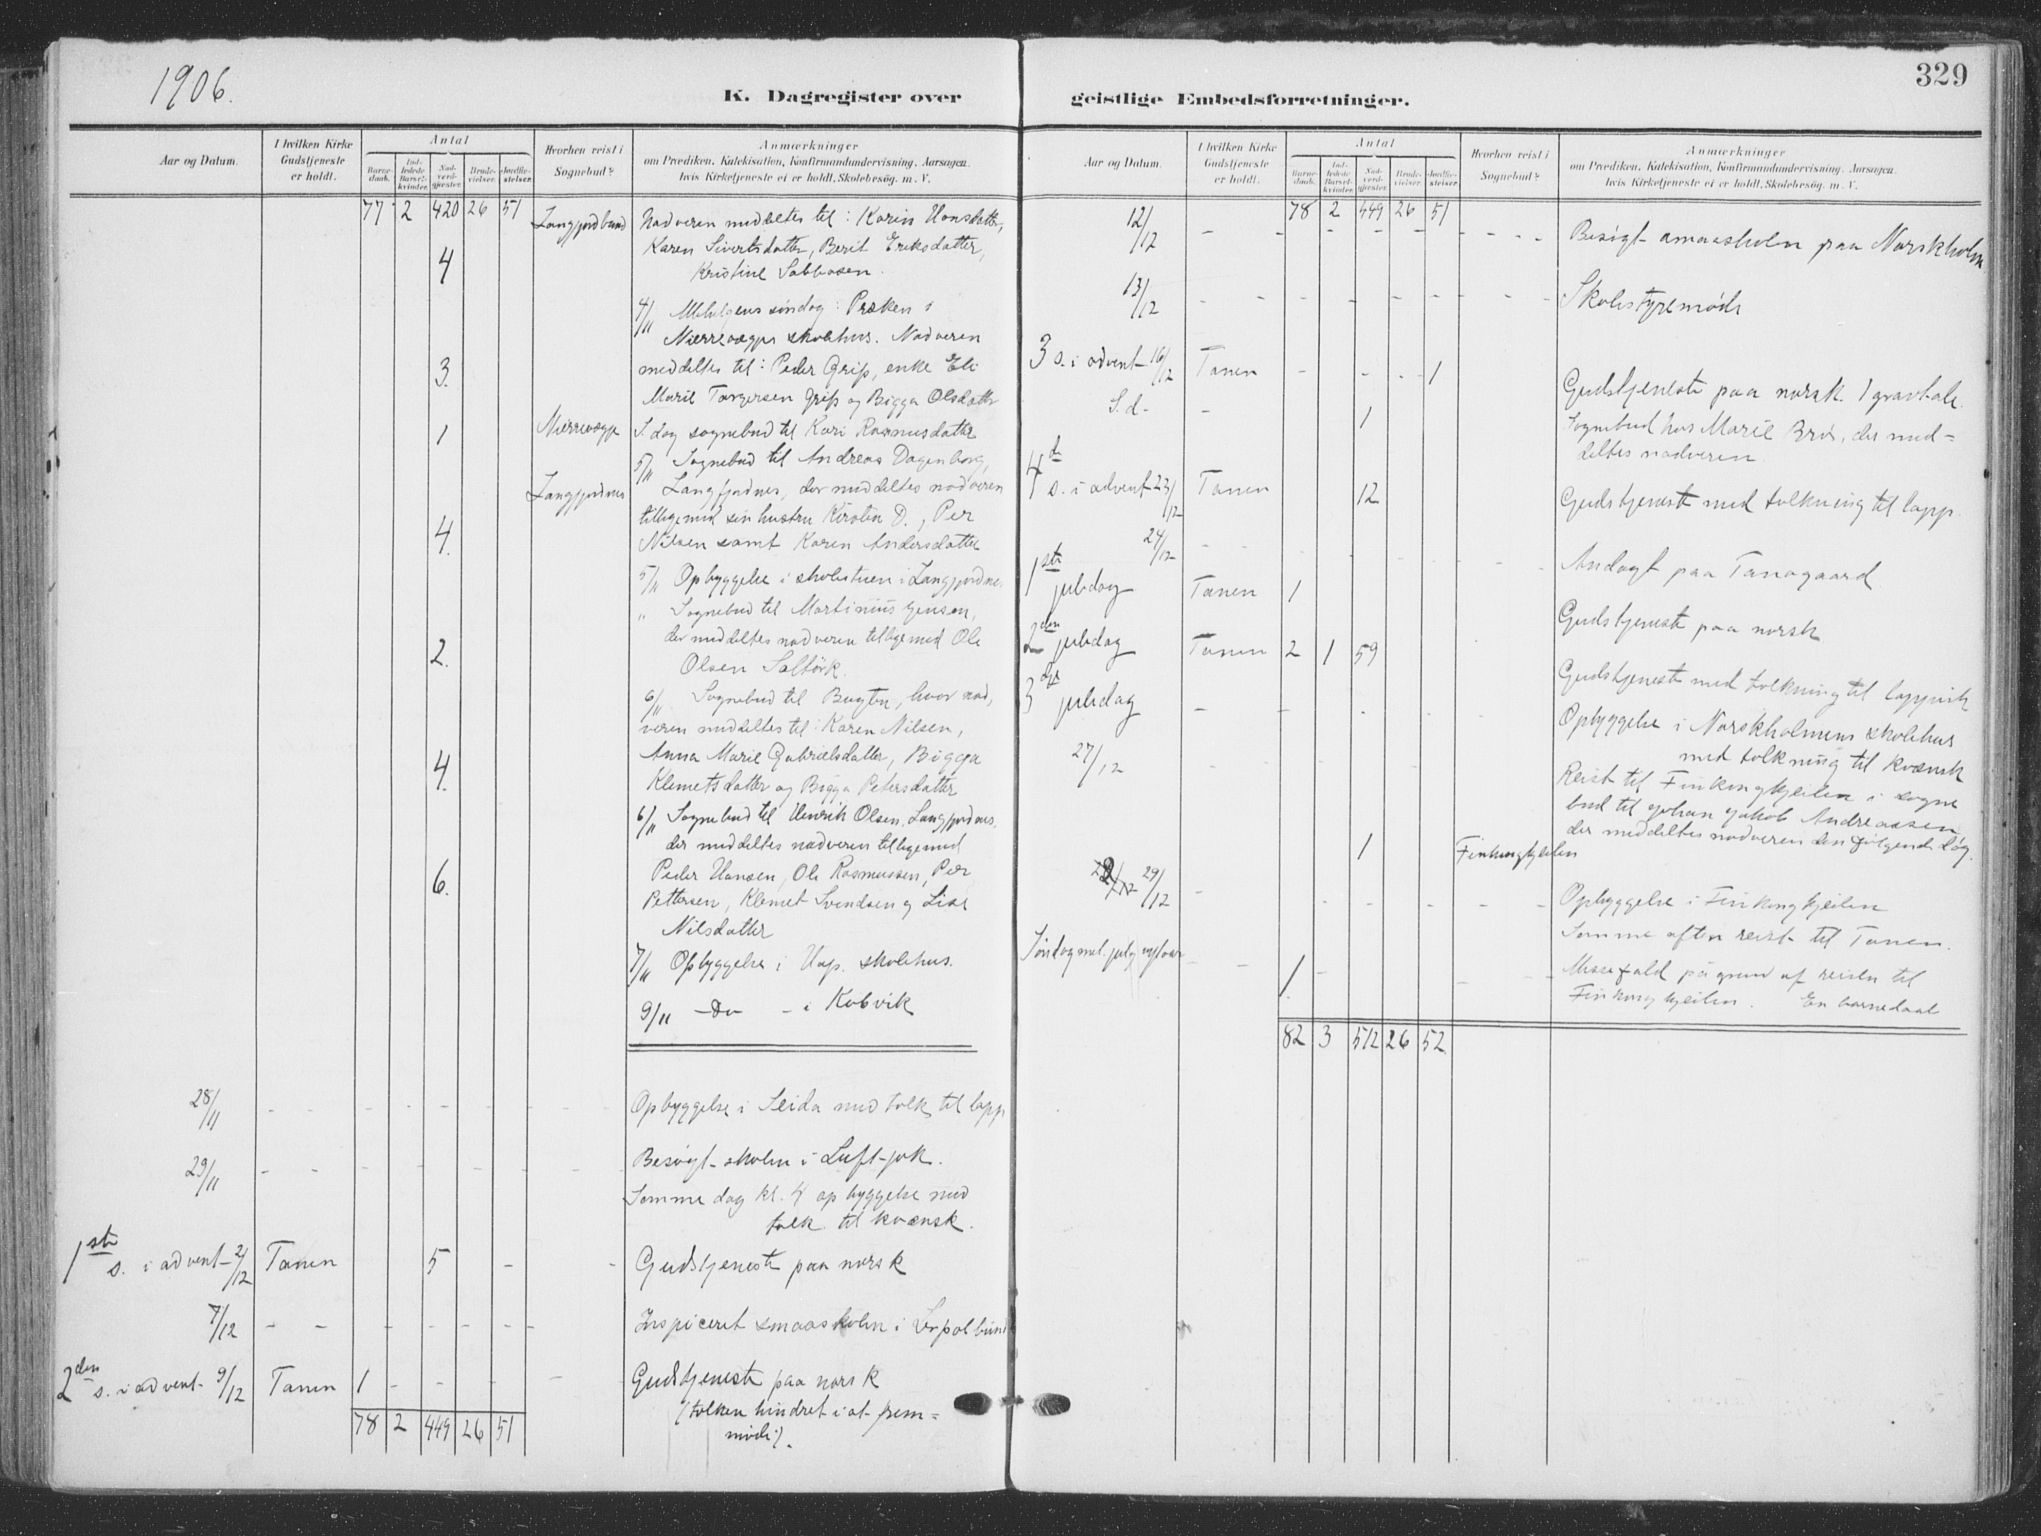 1906.
K. Dagregister over
Aar og Datum.
I hvilken Kirke Gudstjeneste er holdt.
Antal
Barne-daab.
Ind-ledede Barsel-kvinder.
Nad-verd-gjester.
Brude-vielser.
Jordfæ-stelser.
Hvorhen reist i Sognebud?
Anmærkninger
om Prædiken, Katekisation, Konfirmandundervisning, Aarsagen,
hvis Kirketjeneste ei er holdt, Skolebesøg. m. V.
77 2 420 26 51 Langfjordbund Nadveren meddeltes til: Karin Hansdatter,
Karen Sivertsdatter, Berit Eriksdatter,
4 Kristine Sabbasen.
4/11 Allehelgens søndag: Præken i
Nierrevægge skolehus. Nadveren
3. meddeltes til: Peder Grip, enke Eli
Marie Torgersen Grip og Bigga Olsdatter
Nierrevægge 1 S. dag sognebud til Kari Rasmusdatter
5/11 Sognebud til Andreas Dagenborg,
Langfjordnes Langfjordnes, der meddeltes nadveren
tilligemed sin hustru Kirsten D., Per
4. Nilsen samt Karen Andersdatter
5/11 Opbyggelse i skolestuen i Langfjordnes
" Sognebud til Martinius Jensen,
der meddeltes nadveren tilligemed Ole
2. Olsen
6/11 Sognebud til Bugten, hvor nad,
veren meddeltes til: Karen Nilsen,
4. Anna Marie Gabrielsdatter, Bigga
Klemetsdatter og Bigga Petersdatter
6/11 Sognebud til Henrik Olsen, Langfjordnes,
der meddeltes nadveren tilligemed
6. Peder Hansen, Ole Rasmussen, Per
Pettersen, Klemet Svendsen og Lise
Nilsdatter
7/11 Opbyggelse i Hop. skolehus.
9/11 – Do – i Kobvik
28/11 – – – – – – – Opbyggelse i Seida med tolk til lapp
29/11 – – – – – – – Besøgt skolen i Luft-jok.
Samme dag kl. 4 opbyggelse med
tolk til kvænsk.
1ste s. i advent – 2/12 Tanen 5 – – Gudstjeneste paa norsk
7/12 – – – – – – – Inspiceret smaaskolen i
2den s. i advent – 9/12 Tanen 1 – – – – – Gudstjeneste paa norsk
(tolken hindret i at frem=
møde).
78 2 449 26 51
329
geistlige Embedsforretninger.
Aar og Datum.
I hvilken Kirke Gudstjeneste er holdt.
Antal
Barne-daab.
Ind-ledede Barsel-kvinder.
Nad-verd-gjester.
Brude-vielser.
Jordfæ-stelser.
Hvorhen reist i Sognebud?
Anmærkninger
om Prædiken, Katekisation, Konfirmandundervisning, Aarsagen,
hvis Kirketjeneste ei er holdt, Skolebesøg. m. V.
78 2 449 26 51
12/12 – – – – – – – Besøgt smaaskolen paa Norskholm
13/12 – – – – – – – Skolestyremøde
3 s. i advent 16/12 Tanen – – – 1 Gudstjeneste paa norsk. 1 gravtale.
S. d. – 1 Sognebud hos Marie Brox, der med=
deltes nadveren.
4de s. i advent 23/12 Tanen 12 Gudstjeneste med tolkning til lapp.
24/12 – – – – – – Andagt paa Tanagaard.
1ste juledag Tanen 1 Gudstjeneste paa norsk
2den juledag Tanen 2 1 59 Gudstjeneste med tolkning til lappisk
3die juledag – – – – – – Opbyggelse i Norskholmens skolehus
med tolkning til kvænsk
27/12 – – – – – Reist til Finkongkjeilen i sogne
bud til Johan Jakob Andreassen,
der meddeltes nadveren den følgende dag.
1 Finkongkjeilen
29/12 – – – – – – Opbyggelse i Finkongkjeilen
Samme aften reist til Tanen.
Søndag mel. jul og nytaar – – 1. – – – Messefald på grund af reisen til
Finkongkjeilen. En barnedaab
82 3 512 26 52